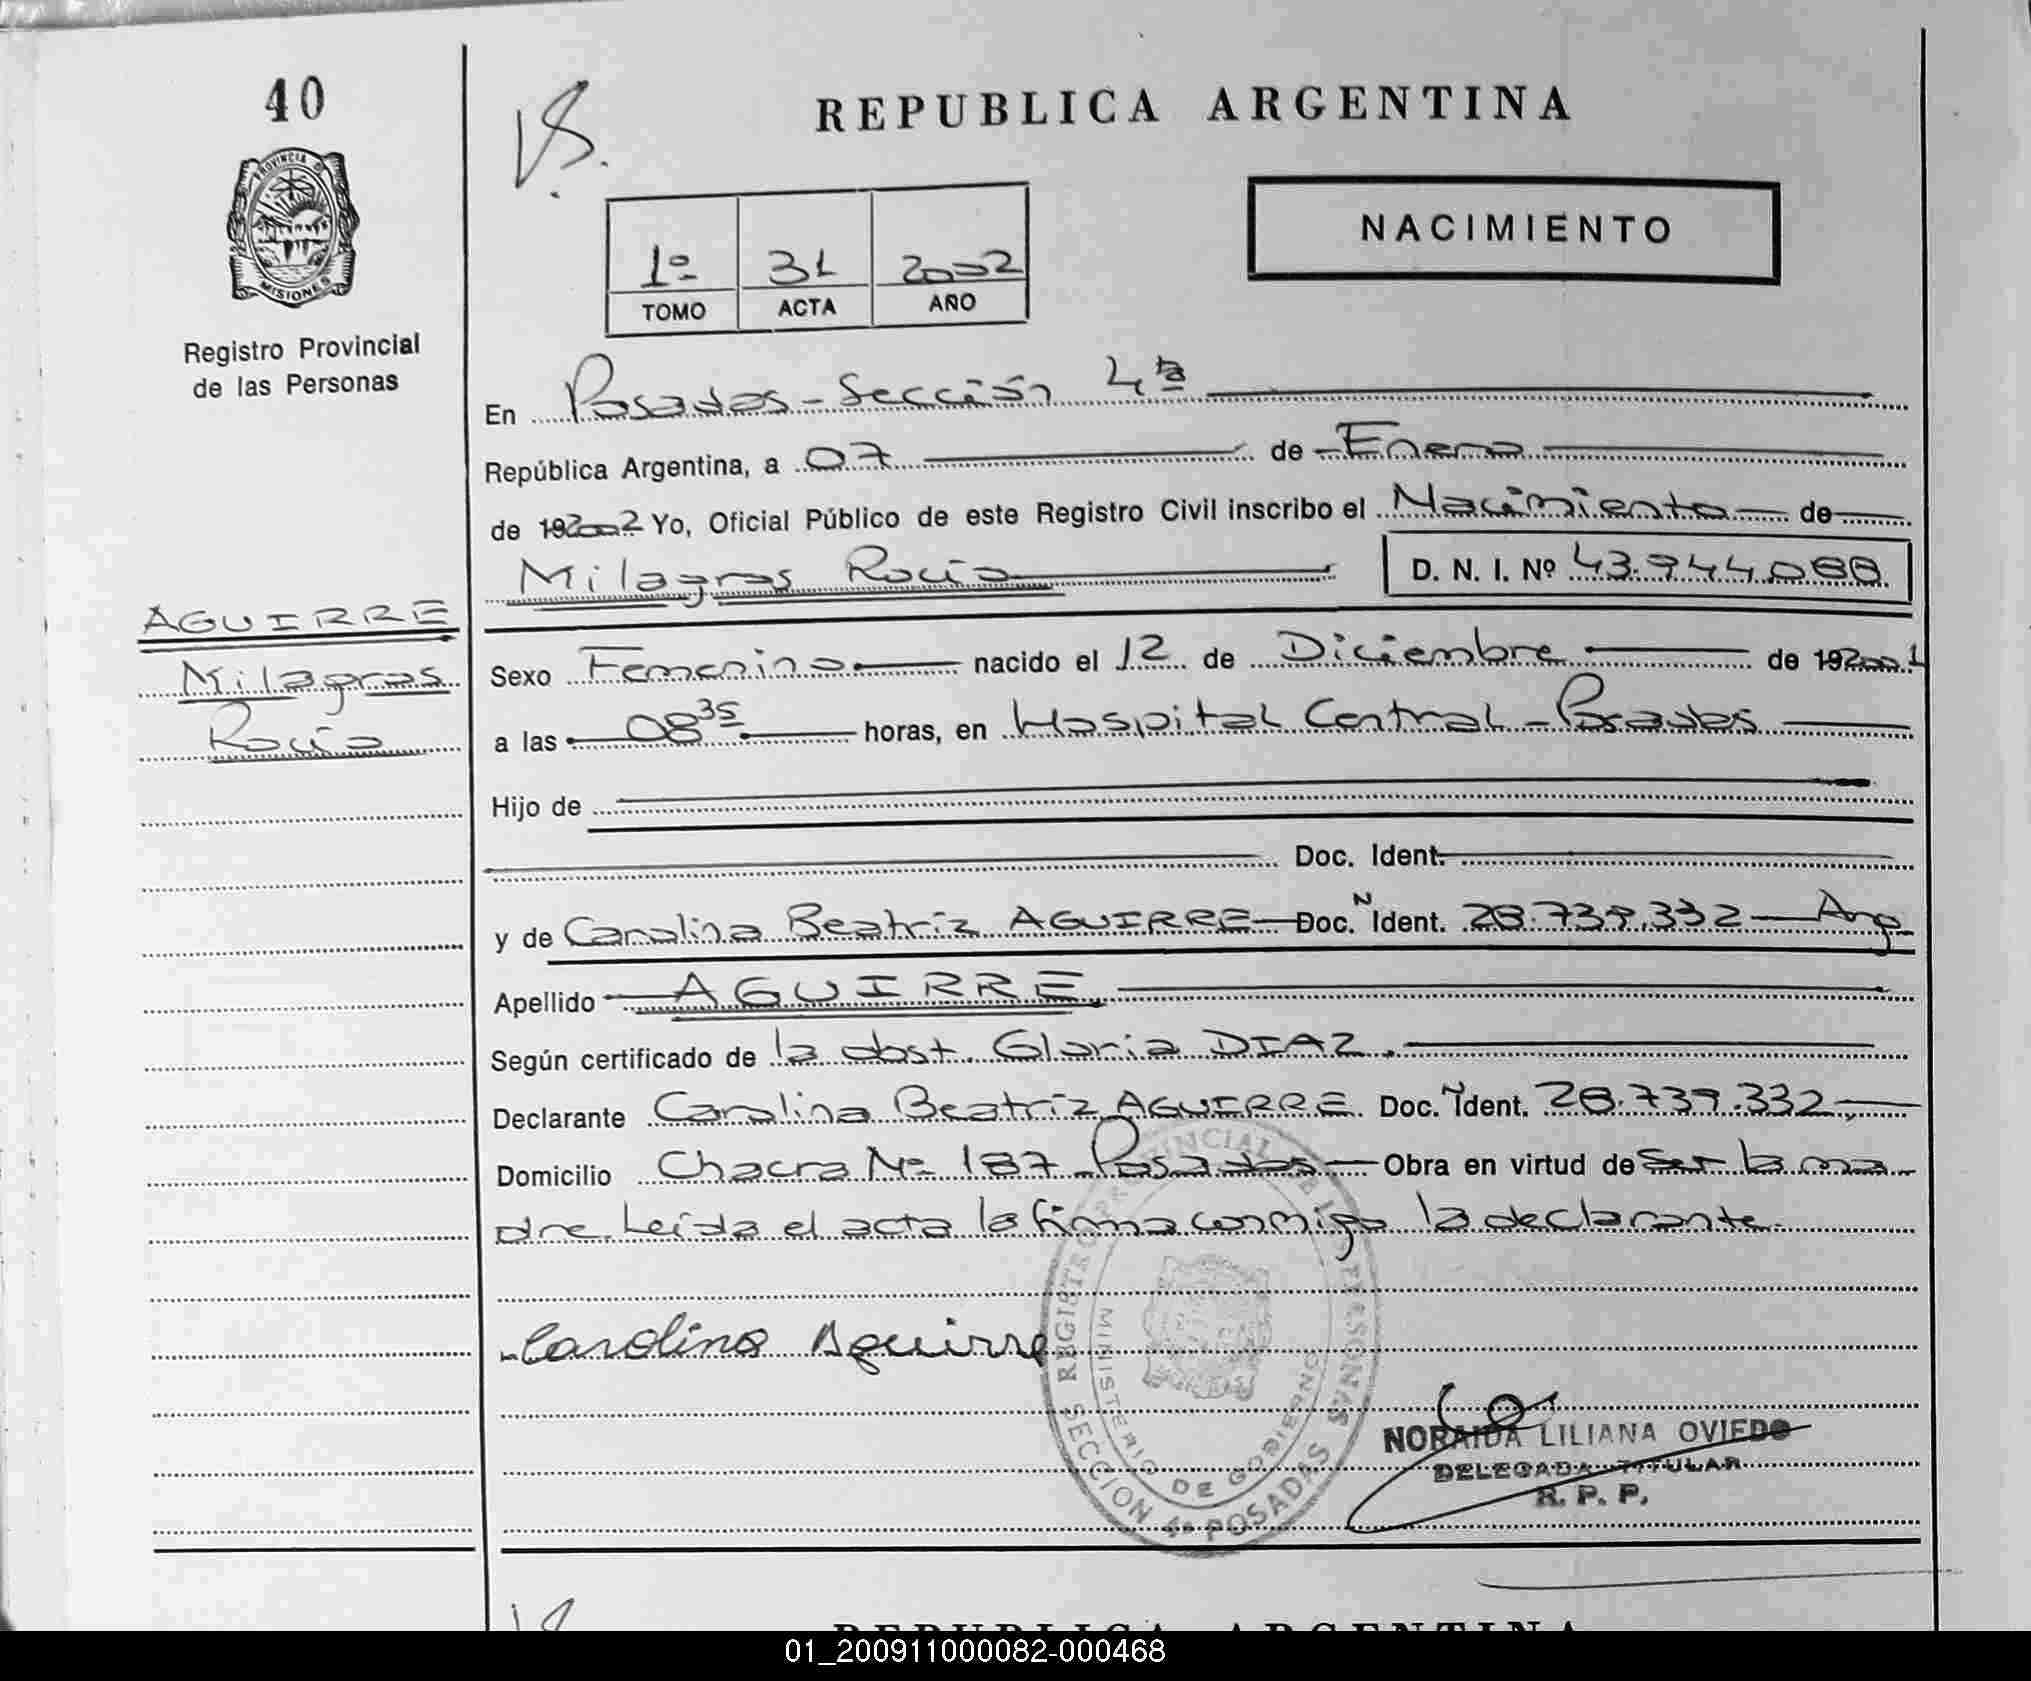 40
PROVINCIA DE
MISIONES
Registro Provincial
de las Personas
REPUBLICA ARGENTINA
NACIMIENTO
1º 31 2002
TOMO ACTA AÑO
En Posadas - Sección 4ta
República Argentina, a 07 de Enero
de 192002 Yo, Oficial Público de este Registro Civil inscribo el Nacimiento de
Milagros Rocío D. N. I. Nº 43.944.088
AGUIRRE
Milagros
Rocío
Sexo Femenino nacido el 12 de Diciembre de 192001
a las 08 35 horas, en Hospital Central - Posadas
Hijo de
Doc. Ident.
y de Carolina Beatriz AGUIRRE Doc. N Ident. 28.739.332 - Arg
Apellido AGUIRRE
Según certificado de la obst. Gloria DIAZ.
Declarante Carolina Beatriz AGUIRRE Doc. N Ident. 28.739.332,
Domicilio Chacra Nº 187 - Posadas Obra en virtud de Ser la ma
dre. Leída el acta la firma conmigo la declarante.
Carolina Aguirre
REGISTRO PROVINCIAL DE LAS PERSONAS
MINISTERIO DE GOBIERNO
SECCION 4ª POSADAS
NORAIDA LILIANA OVIEDO
DELEGADA TITULAR
R. P. P.
REPUBLICA ARGENTINA
01_200911000082-000468